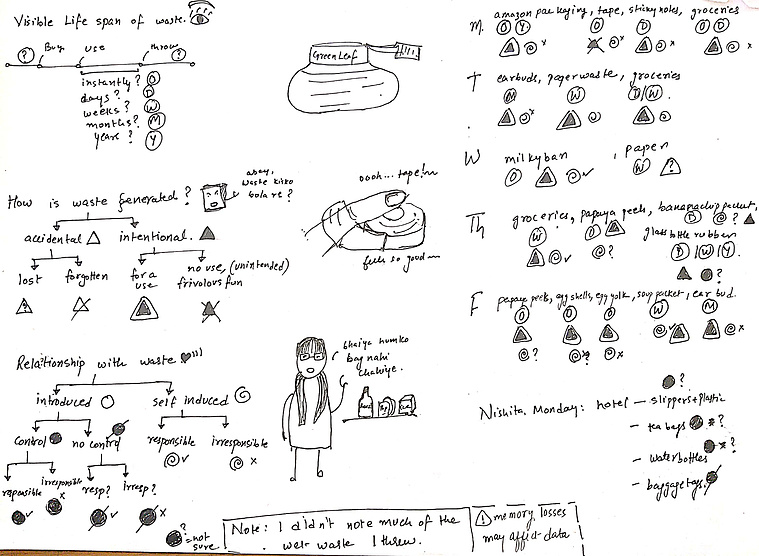 Visible Life span of waste.
? Buy use throw ?
instantly? O
days? D
weeks? W
months? M
years? Y
How is waste generated?
abey, waste kisko bola re?
accidental intentional.
lost forgotten for a use no use, (unintended) frivolous fun
?
Relationship with waste
introduced self induced
control no control responsible irresponsible
responsible irresponsible resp? irresp?
? = not sure
Green Leaf
oooh... tape!~
feels so good~
bhaiya humko
bag nahi
chahiye.
Note: I didn't note much of the
wet waste I threw.
! memory losses
may affect data
M. amazon packaging, tape, sticky notes, groceries
O Y. O D O D
x x x
T earbuds, paper waste, groceries
M W D/W.
x
W milkybar , paper
O W ?
Th groceries, papaya peels, banana chip packet,
W O D ?
?
glass bottle rubber
D / W / Y.
?
F papaya peels, egg shells, egg yolk, soup packet, ear bud.
O O O W M
? ? x x
?
Nishita Monday: hotel – slippers + plastic
– tea bags x ?
x ?
– water bottles
– baggage tags.